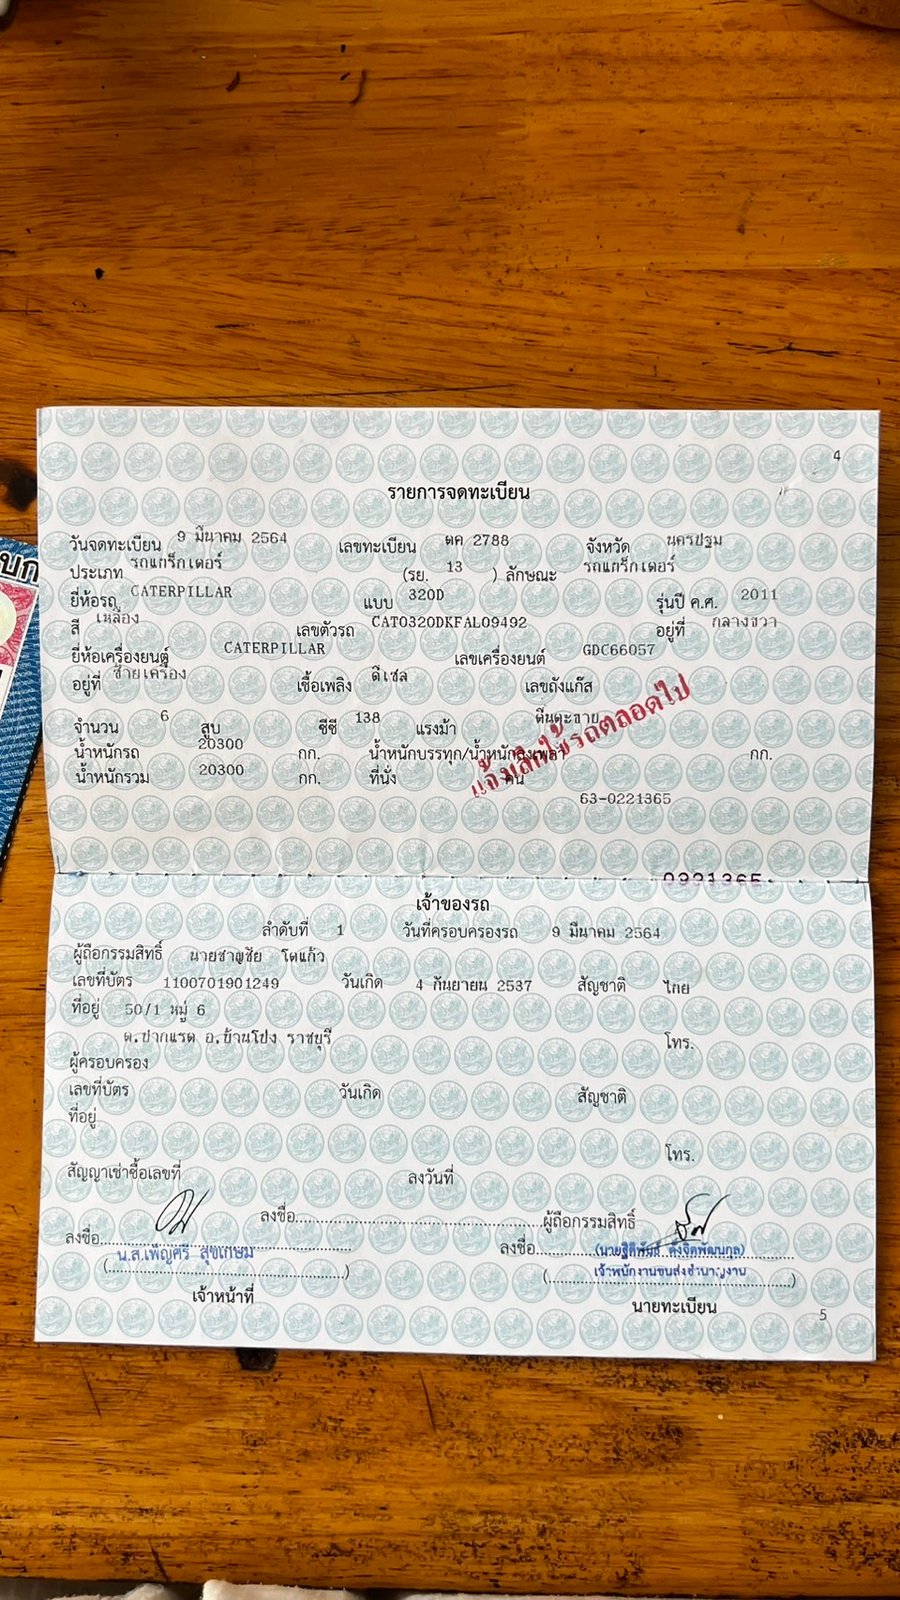 บก
4
รายการจดทะเบียน
วันจดทะเบียน 9 มีนาคม 2564 เลขทะเบียน ตค 2788 จังหวัด นครปฐม
ประเภท รถแทร็กเตอร์ (รย. 13 ) ลักษณะ รถแทร็กเตอร์
ยี่ห้อรถ CATERPILLAR แบบ 320D รุ่นปี ค.ศ. 2011
สี เหลือง เลขตัวรถ CAT0320DKFAL09492 อยู่ที่ กลางขวา
ยี่ห้อเครื่องยนต์ CATERPILLAR เลขเครื่องยนต์ GDC66057
อยู่ที่ ซ้ายเครื่อง เชื้อเพลิง ดีเซล เลขถังแก๊ส
จำนวน 6 สูบ ซีซี 138 แรงม้า ตีนตะขาบ
น้ำหนักรถ 20300 กก. น้ำหนักบรรทุก/น้ำหนักลงเพลา กก.
น้ำหนักรวม 20300 กก. ที่นั่ง คน
แจ้งเลิกใช้รถตลอดไป
63-0221365
0221365
เจ้าของรถ
ลำดับที่ 1 วันที่ครอบครองรถ 9 มีนาคม 2564
ผู้ถือกรรมสิทธิ์ นายชาญชัย โตแก้ว
เลขที่บัตร 1100701901249 วันเกิด 4 กันยายน 2537 สัญชาติ ไทย
ที่อยู่ 50/1 หมู่ 6
ต.ปากแรต อ.บ้านโป่ง ราชบุรี โทร.
ผู้ครอบครอง
เลขที่บัตร วันเกิด สัญชาติ
ที่อยู่
โทร.
สัญญาเช่าซื้อเลขที่ ลงวันที่
ลงชื่อ ผู้ถือกรรมสิทธิ์
ลงชื่อ ลงชื่อ
น.ส.เพ็ญศรี สุขเกษม
เจ้าพนักงานขนส่งชำนาญงาน
เจ้าหน้าที่ นายทะเบียน
5